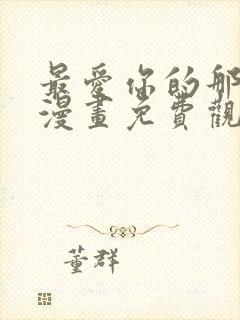 最愛你的那
漫畫免費觀
董群